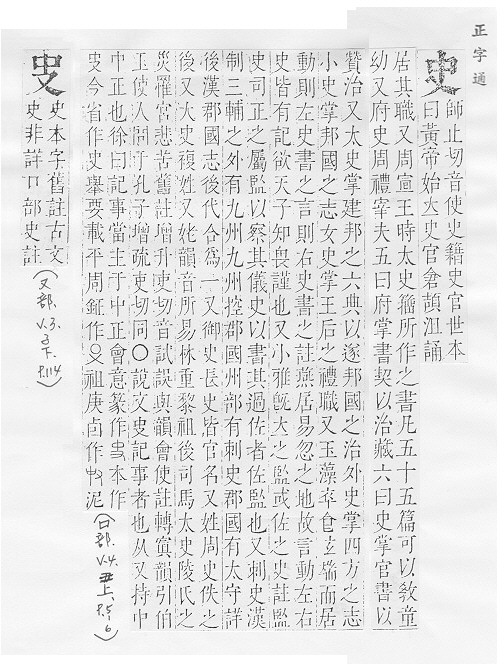 正字通
史 師止切音使史籍史官世本
曰黃帝始立史官倉頡沮誦
居其職又周宣王時太史籀所作之書凡五十五篇可以敎童
幼又府史周禮宰夫五曰府掌書契以治藏六曰史掌官書以
贊治又太史掌建邦之六典以逆邦國之治外史掌四方之志
小史掌邦國之志女史掌王后之禮職又玉藻卒食玄端而居
動則左史書之言則右史書之註燕居易忽之地故言動左右
史皆有記欲天子知畏謹也又小雅旣立之監或佐之史註監
史司正之屬監以察其儀史以書其過佐者佐監也又刺史漢
制三輔之外有九州九州控郡國州部有刺史郡國有太守詳
後漢郡國志後代合爲一又御史長史皆官名又姓周史佚之
後又太史複姓又韻音所易林重黎祖後司馬太史陵氏之
災罹宮悲苦舊註增升吏切音試誤與韻會使註轉寘韻引伯
玉使人問于孔子增疏吏切同〇說文史記事者也从又持中
中正也徐曰記事當主于中正會意篆作本作
今省作史舉要載平周鉦作祖庚卣作泥
(口部.V.4.丑上、P.5,6)
史本字舊註古文
史非詳口部史註
(又部.V.3.子下.P.114)